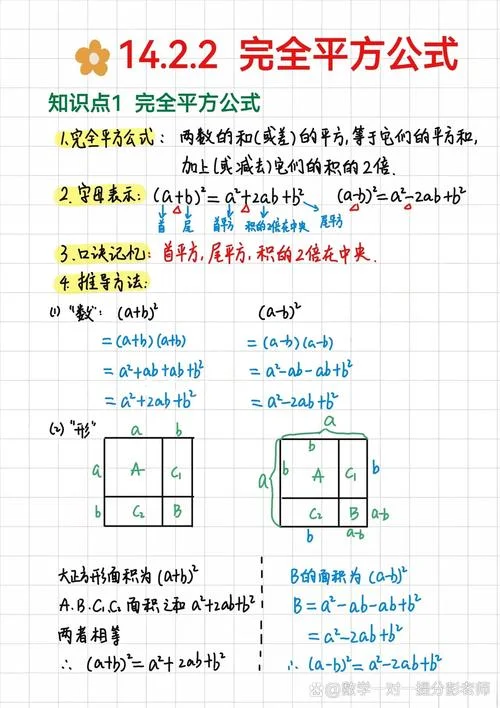 14.2.2 完全平方公式
知识点1 完全平方公式
1.完全平方公式: 两数的和(或差)的平方,等于它们的平方和,
加上(或减去)它们的积的2倍.
2.字母表示: (a+b)²=a²+2ab+b² (a-b)²=a²-2ab+b²
首 尾 首平方 积的2倍在中央 尾平方
3.口诀记忆: 首平方,尾平方,积的2倍在中央.
4.推导方法:
(1) "数": (a+b)² (a-b)²
=(a+b)(a+b) =(a-b)(a-b)
=a²+ab+ab+b² =a²-ab-ab+b²
=a²+2ab+b² =a²-2ab+b²
(2) "形" a b a
b
a A C₁ a b A C₁ b
b C₂ B C₂ B a-b
b a-b
大正方形面积为(a+b)² B的面积为(a-b)²
A.B.C₁.C₂面积之和a²+2ab+b² B=a²-ab-ab+b²
两者相等 =a²-2ab+b²
∴ (a+b)²=a²+2ab+b² ∴(a-b)²=a²-2ab+b²
@数学一对一提分彭老师